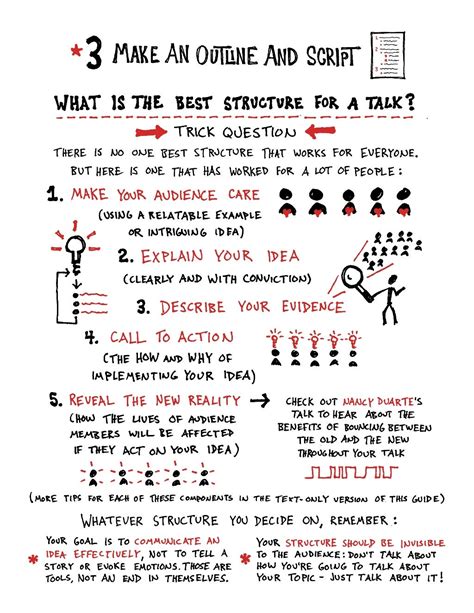 *3 MAKE AN OUTLINE AND SCRIPT
WHAT IS THE BEST STRUCTURE FOR A TALK?
TRICK QUESTION
THERE IS NO ONE BEST STRUCTURE THAT WORKS FOR EVERYONE.
BUT HERE IS ONE THAT HAS WORKED FOR A LOT OF PEOPLE:
1. MAKE YOUR AUDIENCE CARE
(USING A RELATABLE EXAMPLE
OR INTRIGUING IDEA)
2. EXPLAIN YOUR IDEA
(CLEARLY AND WITH CONVICTION)
3. DESCRIBE YOUR EVIDENCE
4. CALL TO ACTION
(THE HOW AND WHY OF
IMPLEMENTING YOUR IDEA)
5. REVEAL THE NEW REALITY
(HOW THE LIVES OF AUDIENCE
MEMBERS WILL BE AFFECTED
IF THEY ACT ON YOUR IDEA)
CHECK OUT NANCY DUARTE'S
TALK TO HEAR ABOUT THE
BENEFITS OF BOUNCING BETWEEN
THE OLD AND THE NEW
THROUGHOUT YOUR TALK
(MORE TIPS FOR EACH OF THESE COMPONENTS IN THE TEXT-ONLY VERSION OF THIS GUIDE)
WHATEVER STRUCTURE YOU DECIDE ON, REMEMBER:
* YOUR GOAL IS TO COMMUNICATE AN
IDEA EFFECTIVELY, NOT TO TELL A
STORY OR EVOKE EMOTIONS. THOSE ARE
TOOLS, NOT AN END IN THEMSELVES.
* YOUR STRUCTURE SHOULD BE INVISIBLE
TO THE AUDIENCE: DON'T TALK ABOUT
HOW YOU'RE GOING TO TALK ABOUT
YOUR TOPIC - JUST TALK ABOUT IT!